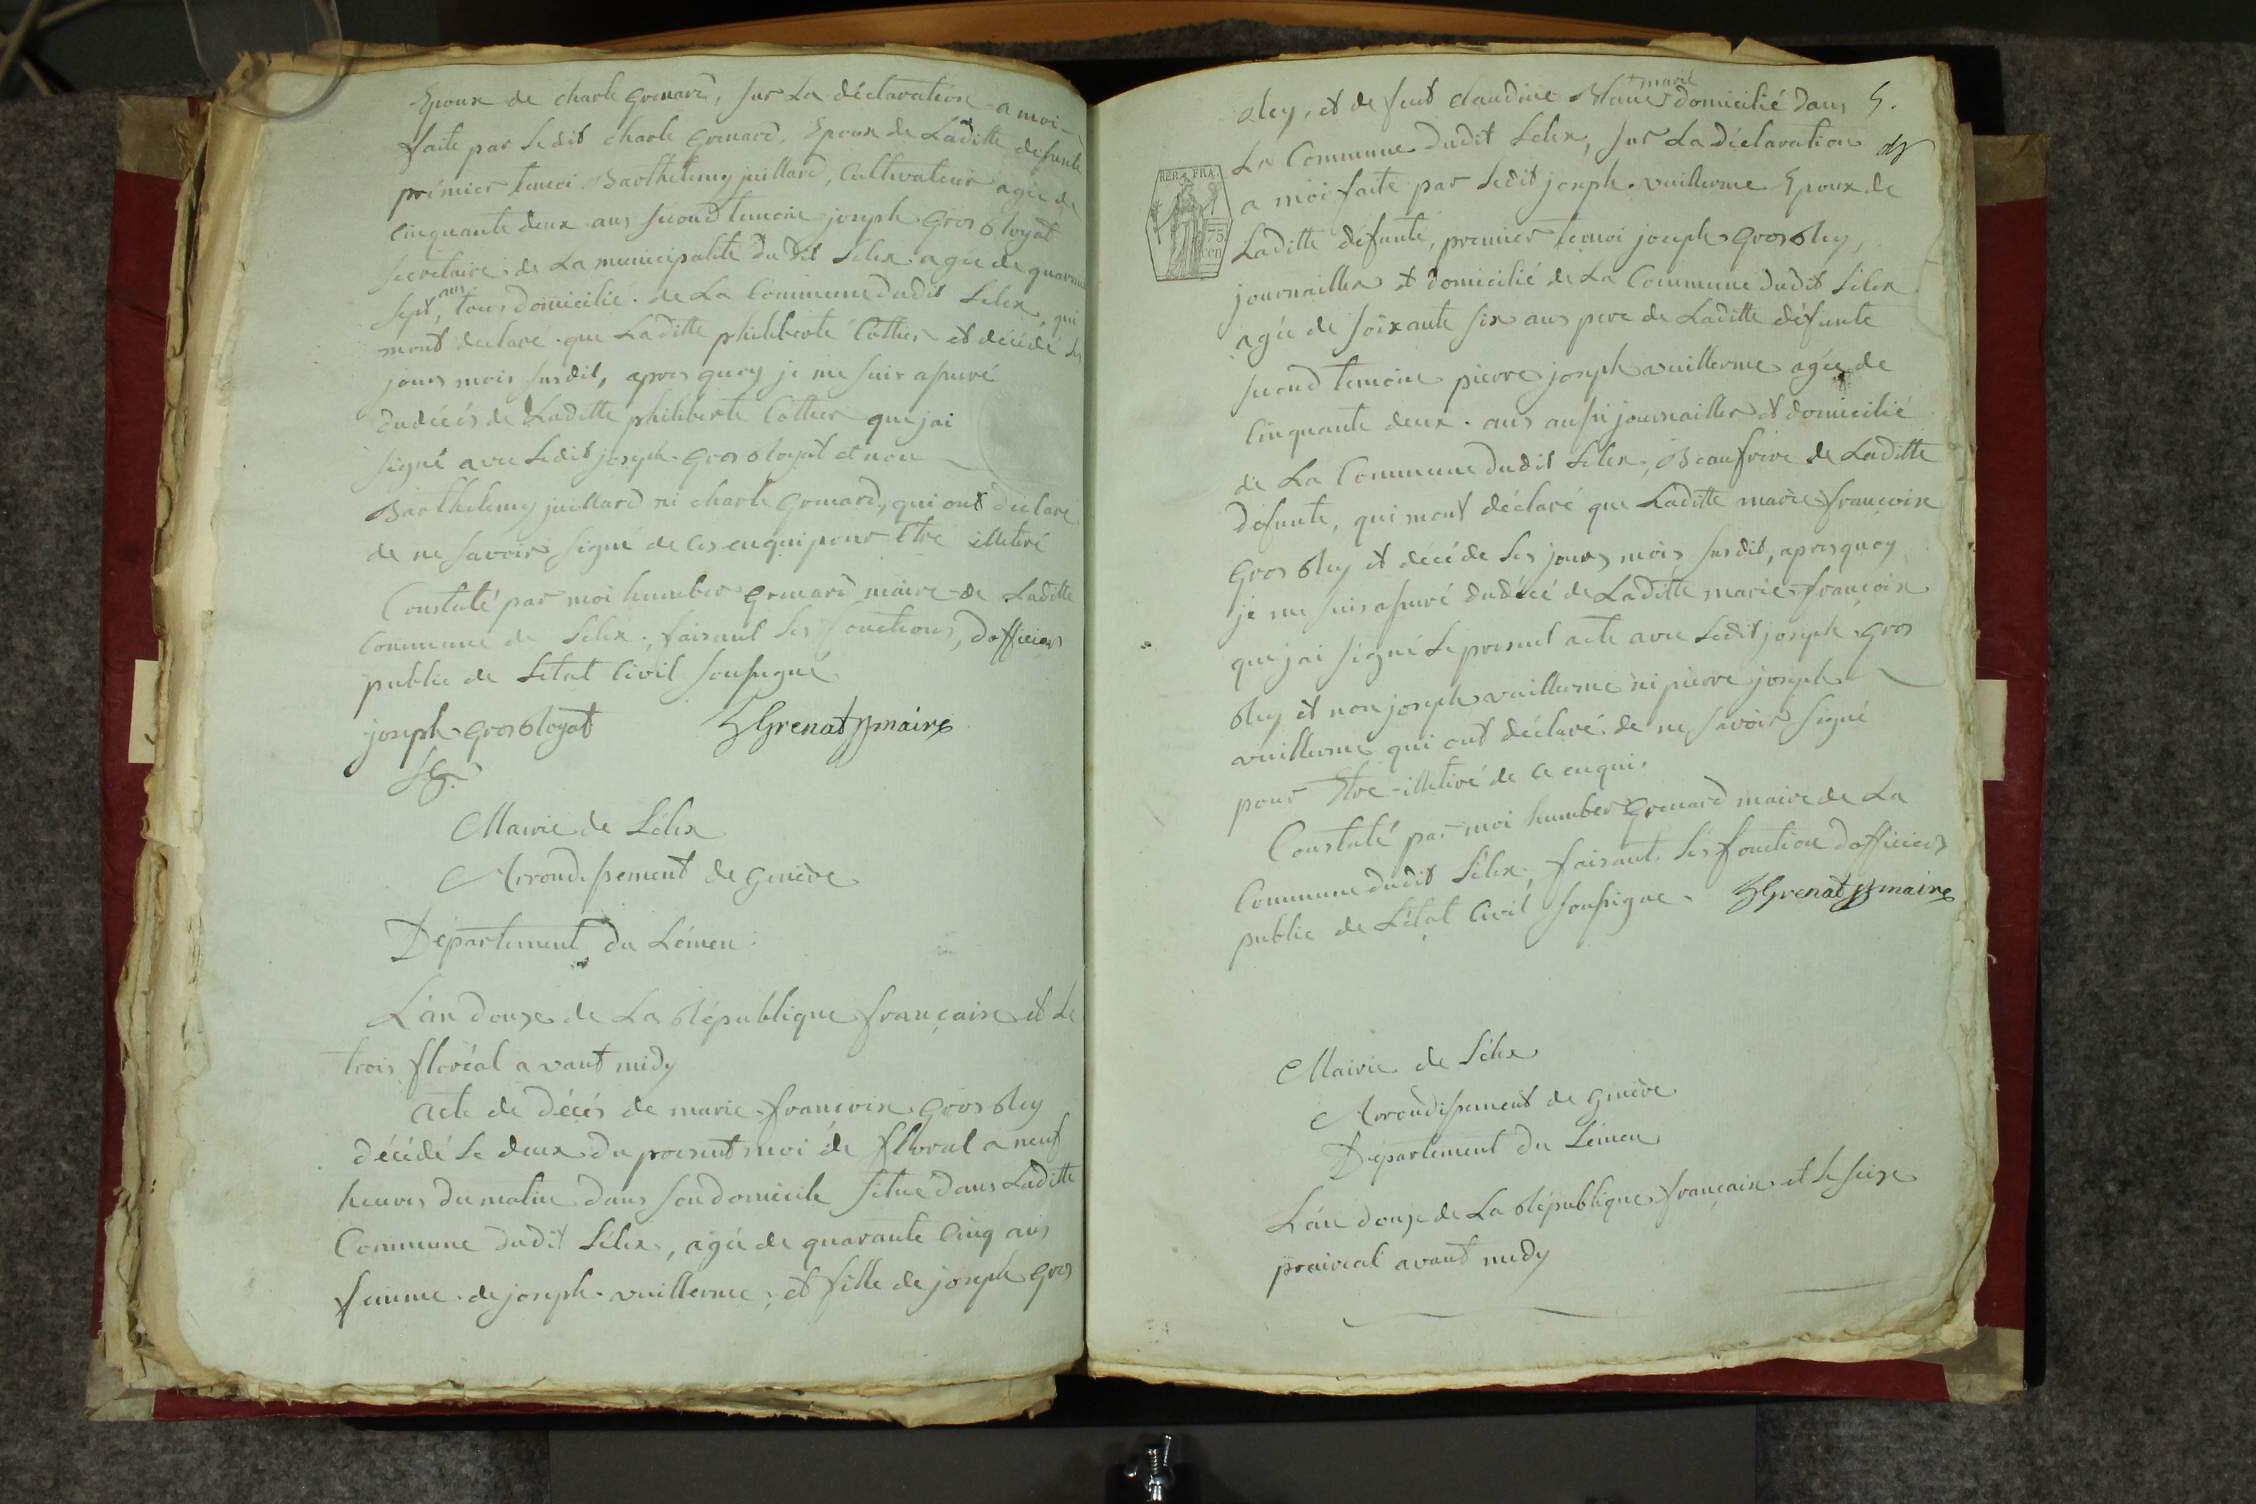 Epoux de charle Grenard, sur La déclaration a moi
faite par Ledit charle Grenard, Epoux de Laditte defunte
prémier temoi Barthelemy juillard, Cultivateur agée de
Cinquante deux ans second temoin joseph Gros Royat
secretaire de La municipalité dudit Lélex agée de quarante
sept ans, tous domicilié de La Commune dudit Lélex, qui
mont declaré que Laditte philiberte Cottier et décédé les
jours mois susdit, apres quoy je me suis assuré
du décés de Laditte philiberte Cottier que jai
signé avec Ledit joseph Gros Royat et non
Barthelemy juillard ni charle Grenard, qui ont declaré
de ne savoir signé de ces enqui pour Etre illetiré
Constaté par moi humber Grenard maire de Laditte
Commune de Lélex, faisant les fonctions, d'officier
public de Létat Civil soussigné
joseph Gros Royat HGrenat maire
Mairie de Lélex
Arrondissement de Genève
Département du Lémen
L'an douze de La République française et Le
trois floréal avant midy
acte de décés de marie françoise Gros Rey
décédé Le deux du present moi de floréal a neuf
heures du matin dans son domicile situé dans Laditte
Commune dudit Lélex, agée de quarante Cinq ans
femme de joseph vuillerme, et fille de joseph Gros
Rey, et de feut claudine Blanc domicilié dans 5.
La Commune dudit Lélex, sur La déclaration
REP. FRA.
75
cen
a moi faite par Ledit joseph vuillerme Epoux de
Laditte defunte, premier temoi joseph Gros Rey,
journaillier et domicilié de La Commune dudit Lélex
agée de soixante six ans pere de Laditte défunte
second temoin pierre joseph vuillerme agée de
Cinquante deux ans aussi journaillier et domicilié
de La Commune dudit Lélex, Beaufrere de Laditte
défunte, qui mont déclaré que Laditte marie françoise
Gros Rey et décéde les jours mois susdit, apres quoy
je me suis assuré du décé de Laditte marie françoise
que jai signé Le present acte avec Ledit joseph Gros
Rey et non joseph vuillerme ni pierre joseph
vuillerme qui ont déclaré de ne savoir signé
pour Etre illetiré de ce enqui.
Constaté par moi humber Grenard maire de La
Commune dudit Lélex, faisant les fonction d'officier
public de Létat Civil soussigne. HGrenat maire
Mairie de Lélex
Arrondissement de Genève
Département du Lémen
L'an douze de La République française et Le seize
praireal avant midy